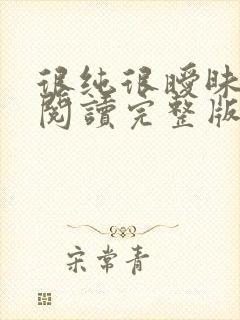 很纯很曖昧
閱讀完整版
宋常青